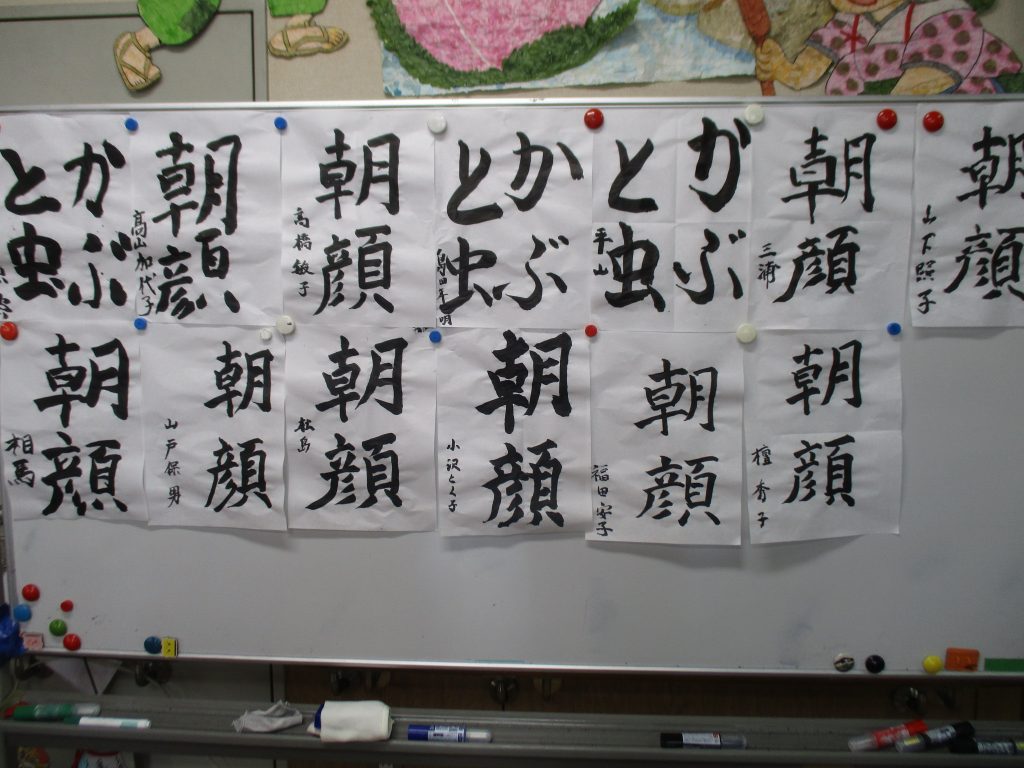 かぶ
と虫
朝顔
高山加代子
朝顔
高橋敏子
かぶ
と虫
かぶ
と虫
平山
朝顔
三浦
朝顔
山下照子
朝顔
相馬
朝顔
山戸保男
朝顔
朝顔
小沢とく子
朝顔
福田安子
朝顔
檀秀子